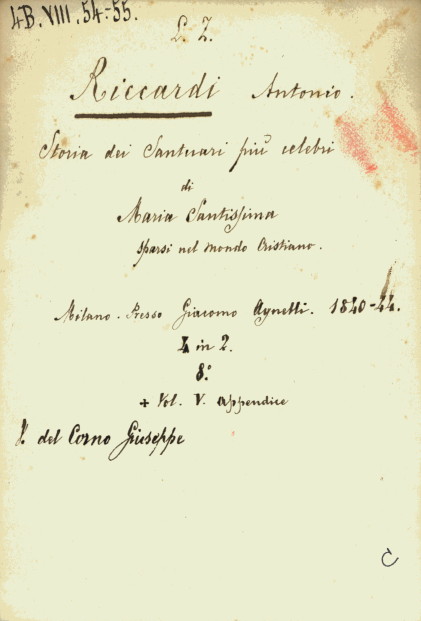 4B.VIII.54.-55.
L. Z.
Riccardi Antonio.
Storia dei Santuari più celebri
di
Maria Santissima
sparsi nel mondo Cristiano.
Milano. Presso Giacomo Agnelli. 1840-44.
4 in 2.
8.°
+ Vol. V. appendice
V. del Corno Giuseppe
C